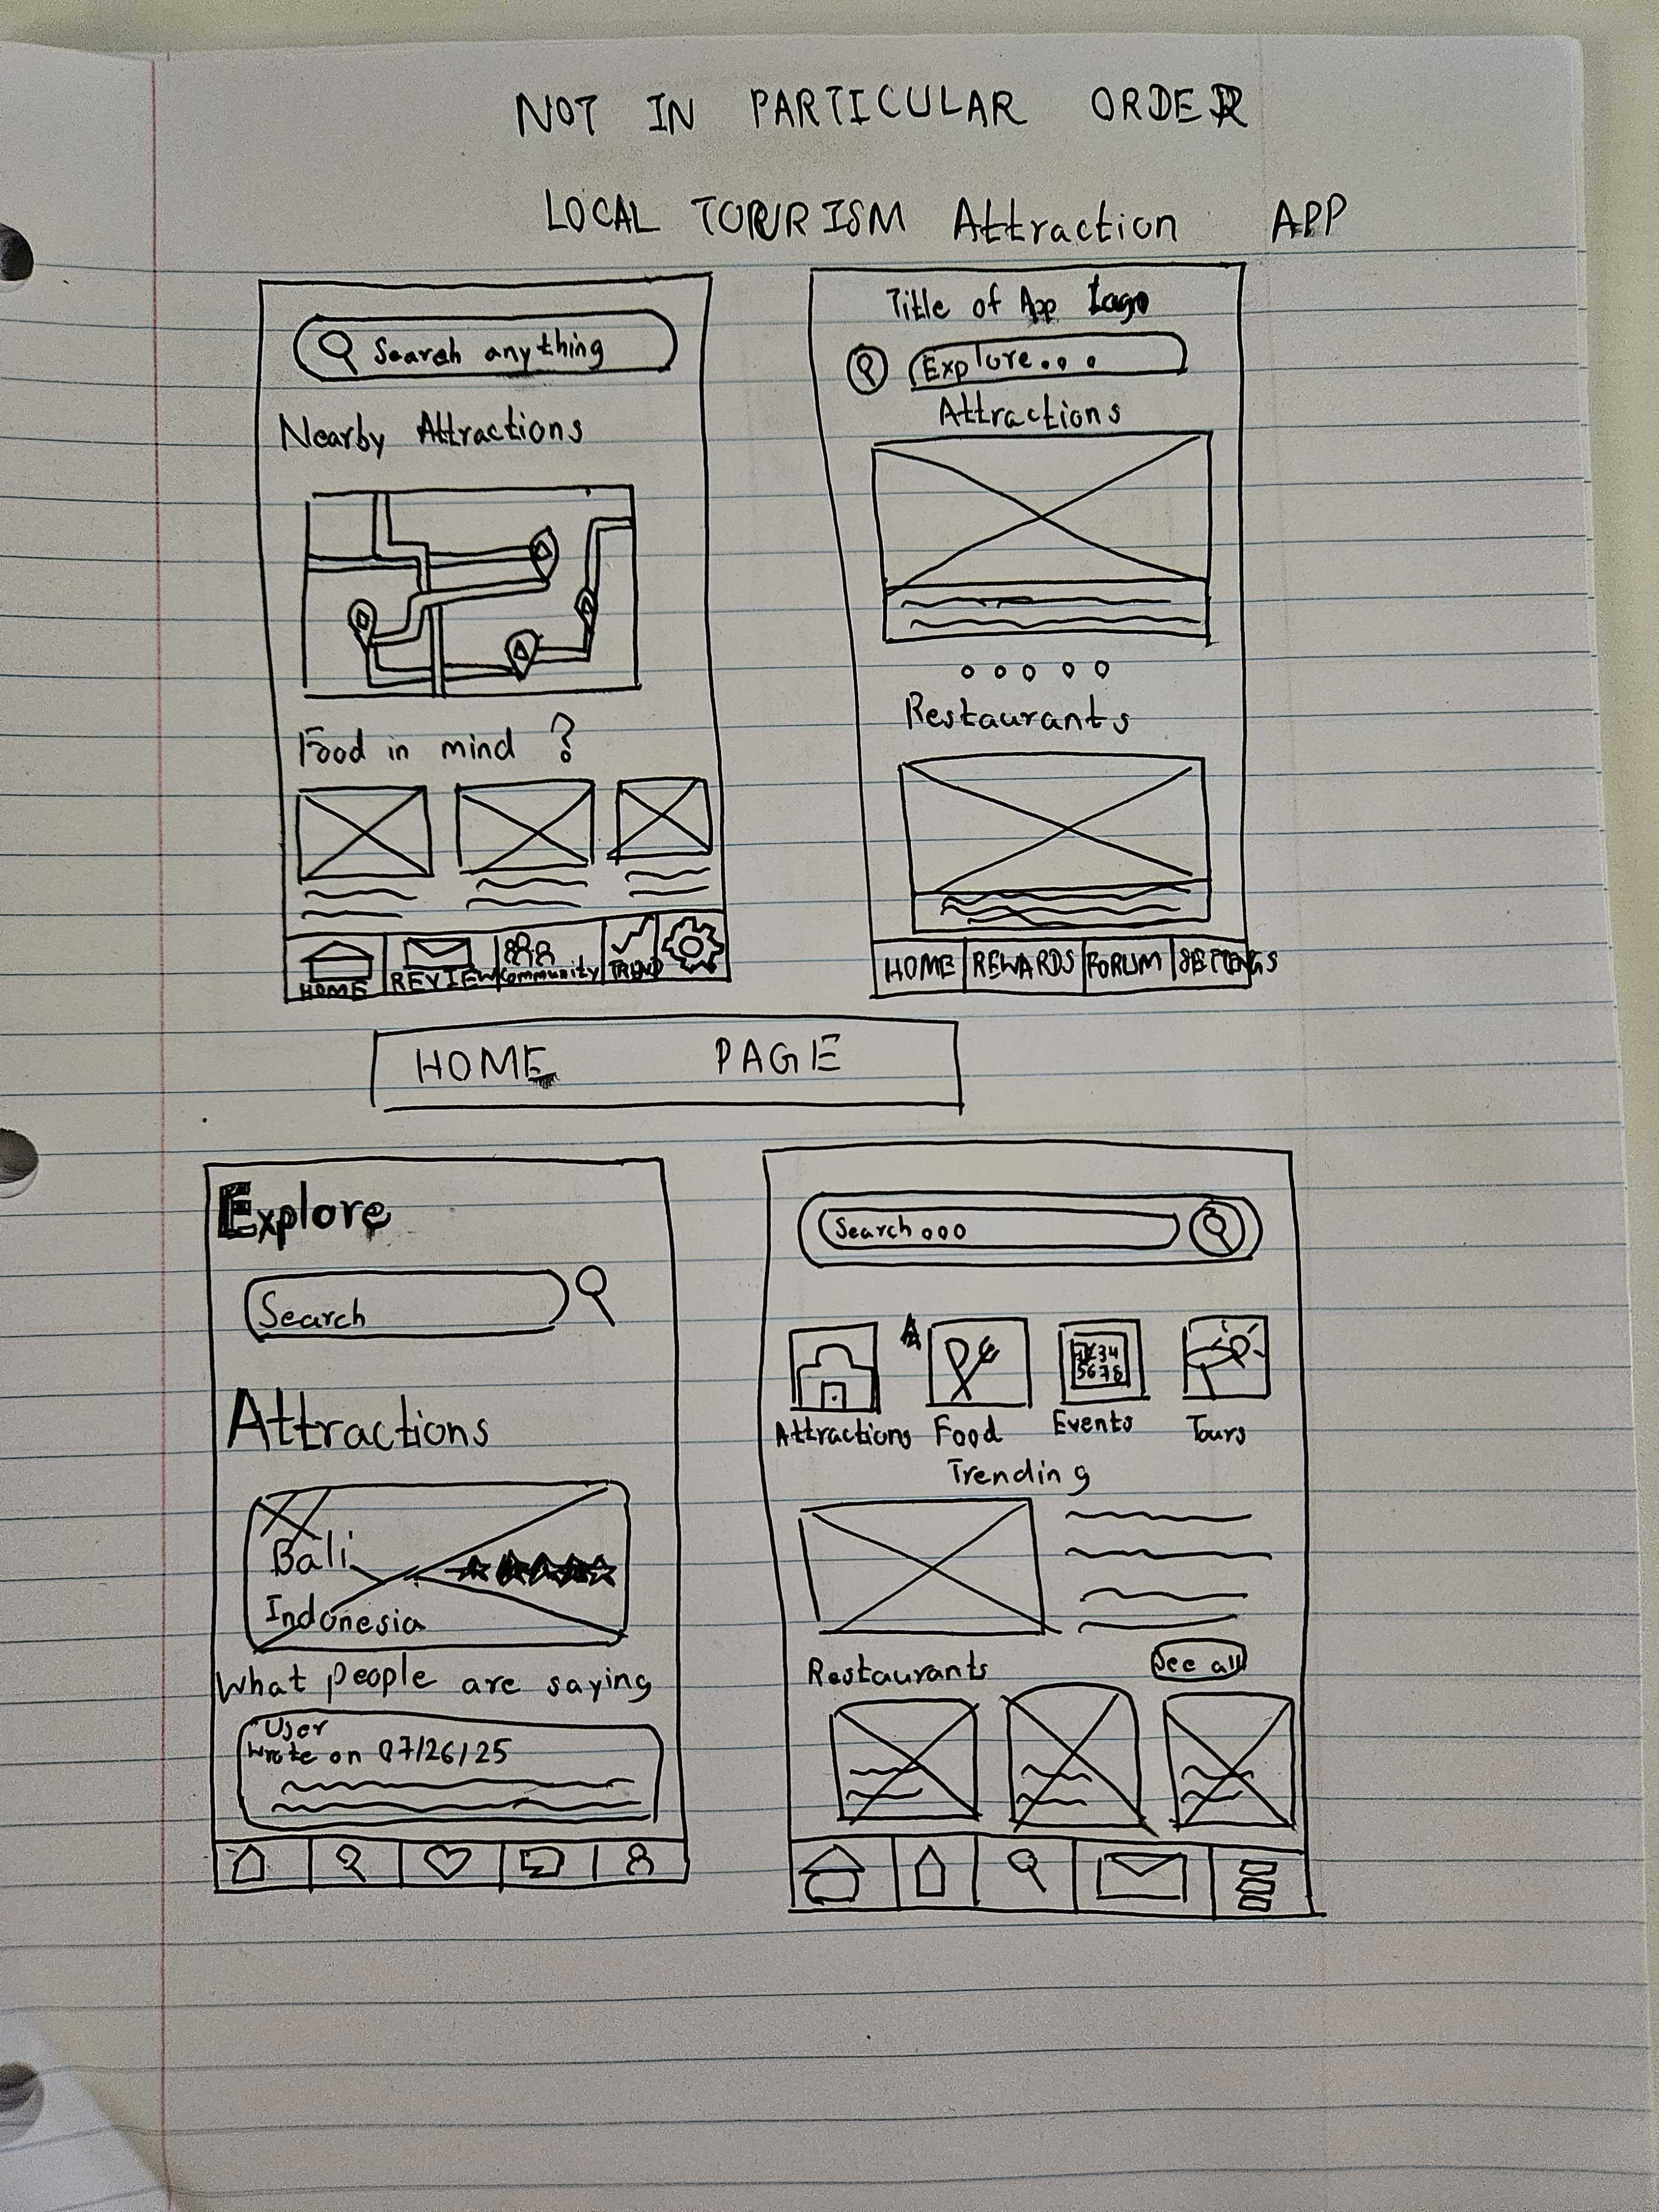 NOT IN PARTICULAR ORDER
LOCAL TOURISM Attraction APP
Search anything
Nearby Attractions
Food in mind ?
HOME
REVIEW
Community
TREND
Title of App Logo
Explore...
Attractions
Restaurants
HOME
REWARDS
FORUM
SETTINGS
HOME PAGE
Explore
Search
Attractions
Bali
Indonesia
What people are saying
User
Wrote on 07/26/25
Search ooo
1234
5678
Attractions
Food
Events
Tours
Trending
Restaurants
See all